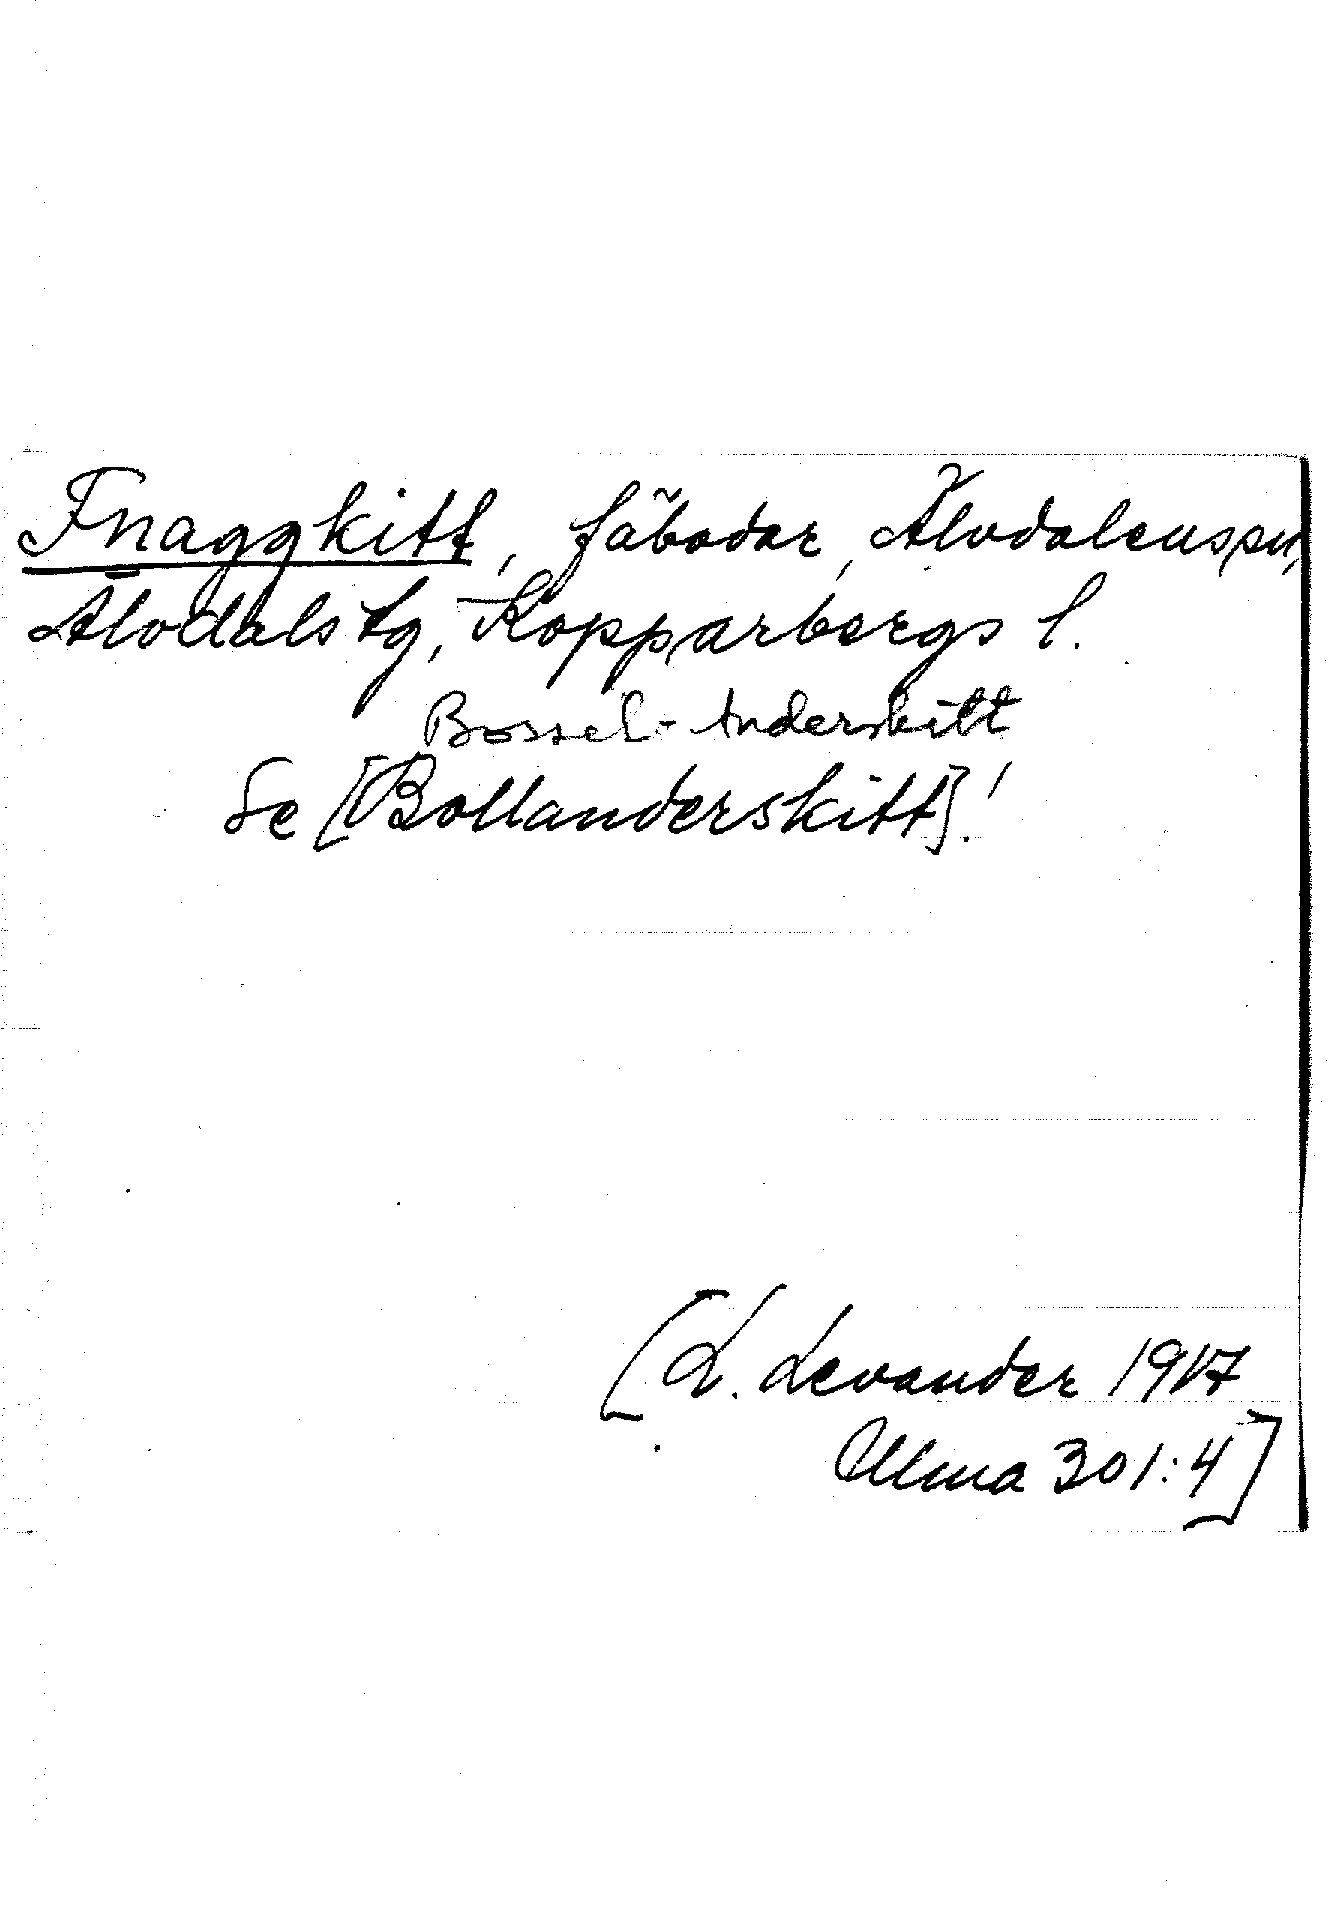 Fnaggkitt, fäbodar, Älvdalens sn,
Älvdals tg, Kopparbergs l.
Bossel-Anderskitt
Se [Bollanderskitt]!
[L. Levander 1917
Ulma 301:4]